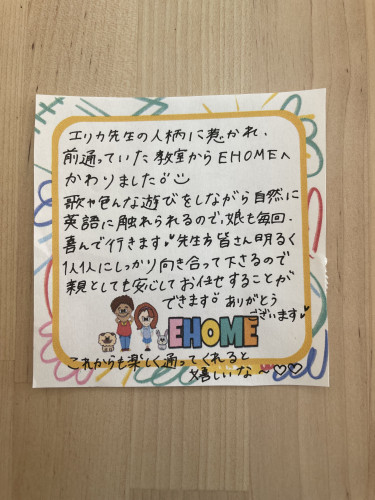 エリカ先生の人柄に惹かれ、
前通っていた教室からEHOMEへ
かわりました
歌や色んな遊びをしながら自然に
英語に触れられるので、娘も毎回、
喜んで行きます♥先生方皆さん明るく
1人1人にしっかり向き合って下さるので
親としても安心してお任せすることが
できます。ありがとう
ございます♥
EHOME
これからも楽しく通ってくれると
嬉しいな〜♡♡♡